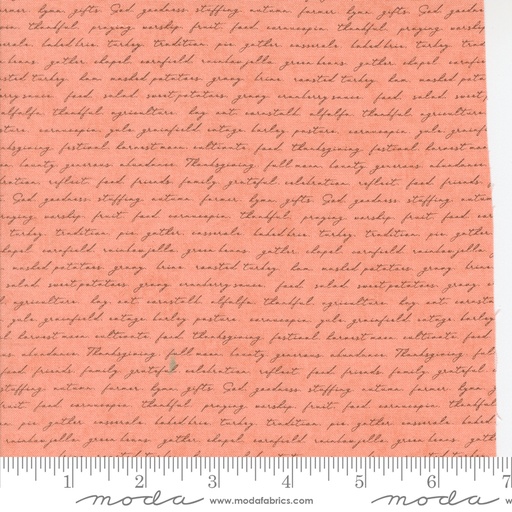 farmer hymn gifts God goodness stuffing autumn farmer hymn gifts God goodness
thankful praying worship fruit food cornucopia thankful praying worship
casserole baked brie turkey tradition pie gather casserole baked brie turkey
green beans gather chapel cornfield rainbow jello green beans gather chapel
roasted turkey ham mashed potatoes gravy brine roasted turkey ham mashed
cranberry sauce food salad sweet potatoes gravy cranberry sauce food salad sweet
alfalfa thankful agriculture hay oat cornstalk alfalfa thankful agriculture
pasture cornucopia yule grainfield cottage barley pasture cornucopia yule
Thanksgiving festival harvest moon cultivate food Thanksgiving festival harvest moon
beauty generous abundance Thanksgiving full moon beauty generous abundance
celebration reflect food friends family grateful celebration reflect food friends
God goodness stuffing autumn farmer hymn gifts God goodness stuffing autumn
praying worship fruit food cornucopia thankful praying worship fruit food
turkey tradition pie gather casserole baked brie turkey tradition pie gather
chapel cornfield rainbow jello green beans gather chapel cornfield rainbow jello
mashed potatoes gravy brine roasted turkey ham mashed potatoes gravy brine
salad sweet potatoes gravy cranberry sauce food salad sweet potatoes gravy
agriculture hay oat cornstalk alfalfa thankful agriculture hay oat cornstalk
yule grainfield cottage barley pasture cornucopia yule grainfield cottage
harvest moon cultivate food Thanksgiving festival harvest moon cultivate food
abundance Thanksgiving full moon beauty generous abundance Thanksgiving
food friends family grateful celebration reflect food friends family grateful
stuffing autumn farmer hymn gifts God goodness stuffing autumn farmer hymn
fruit food cornucopia thankful praying worship fruit food cornucopia thankful
pie gather casserole baked brie turkey tradition pie gather casserole
rainbow jello green beans gather chapel cornfield rainbow jello green beans
1 2 3 4 5 6 7
moda www.modafabrics.com moda